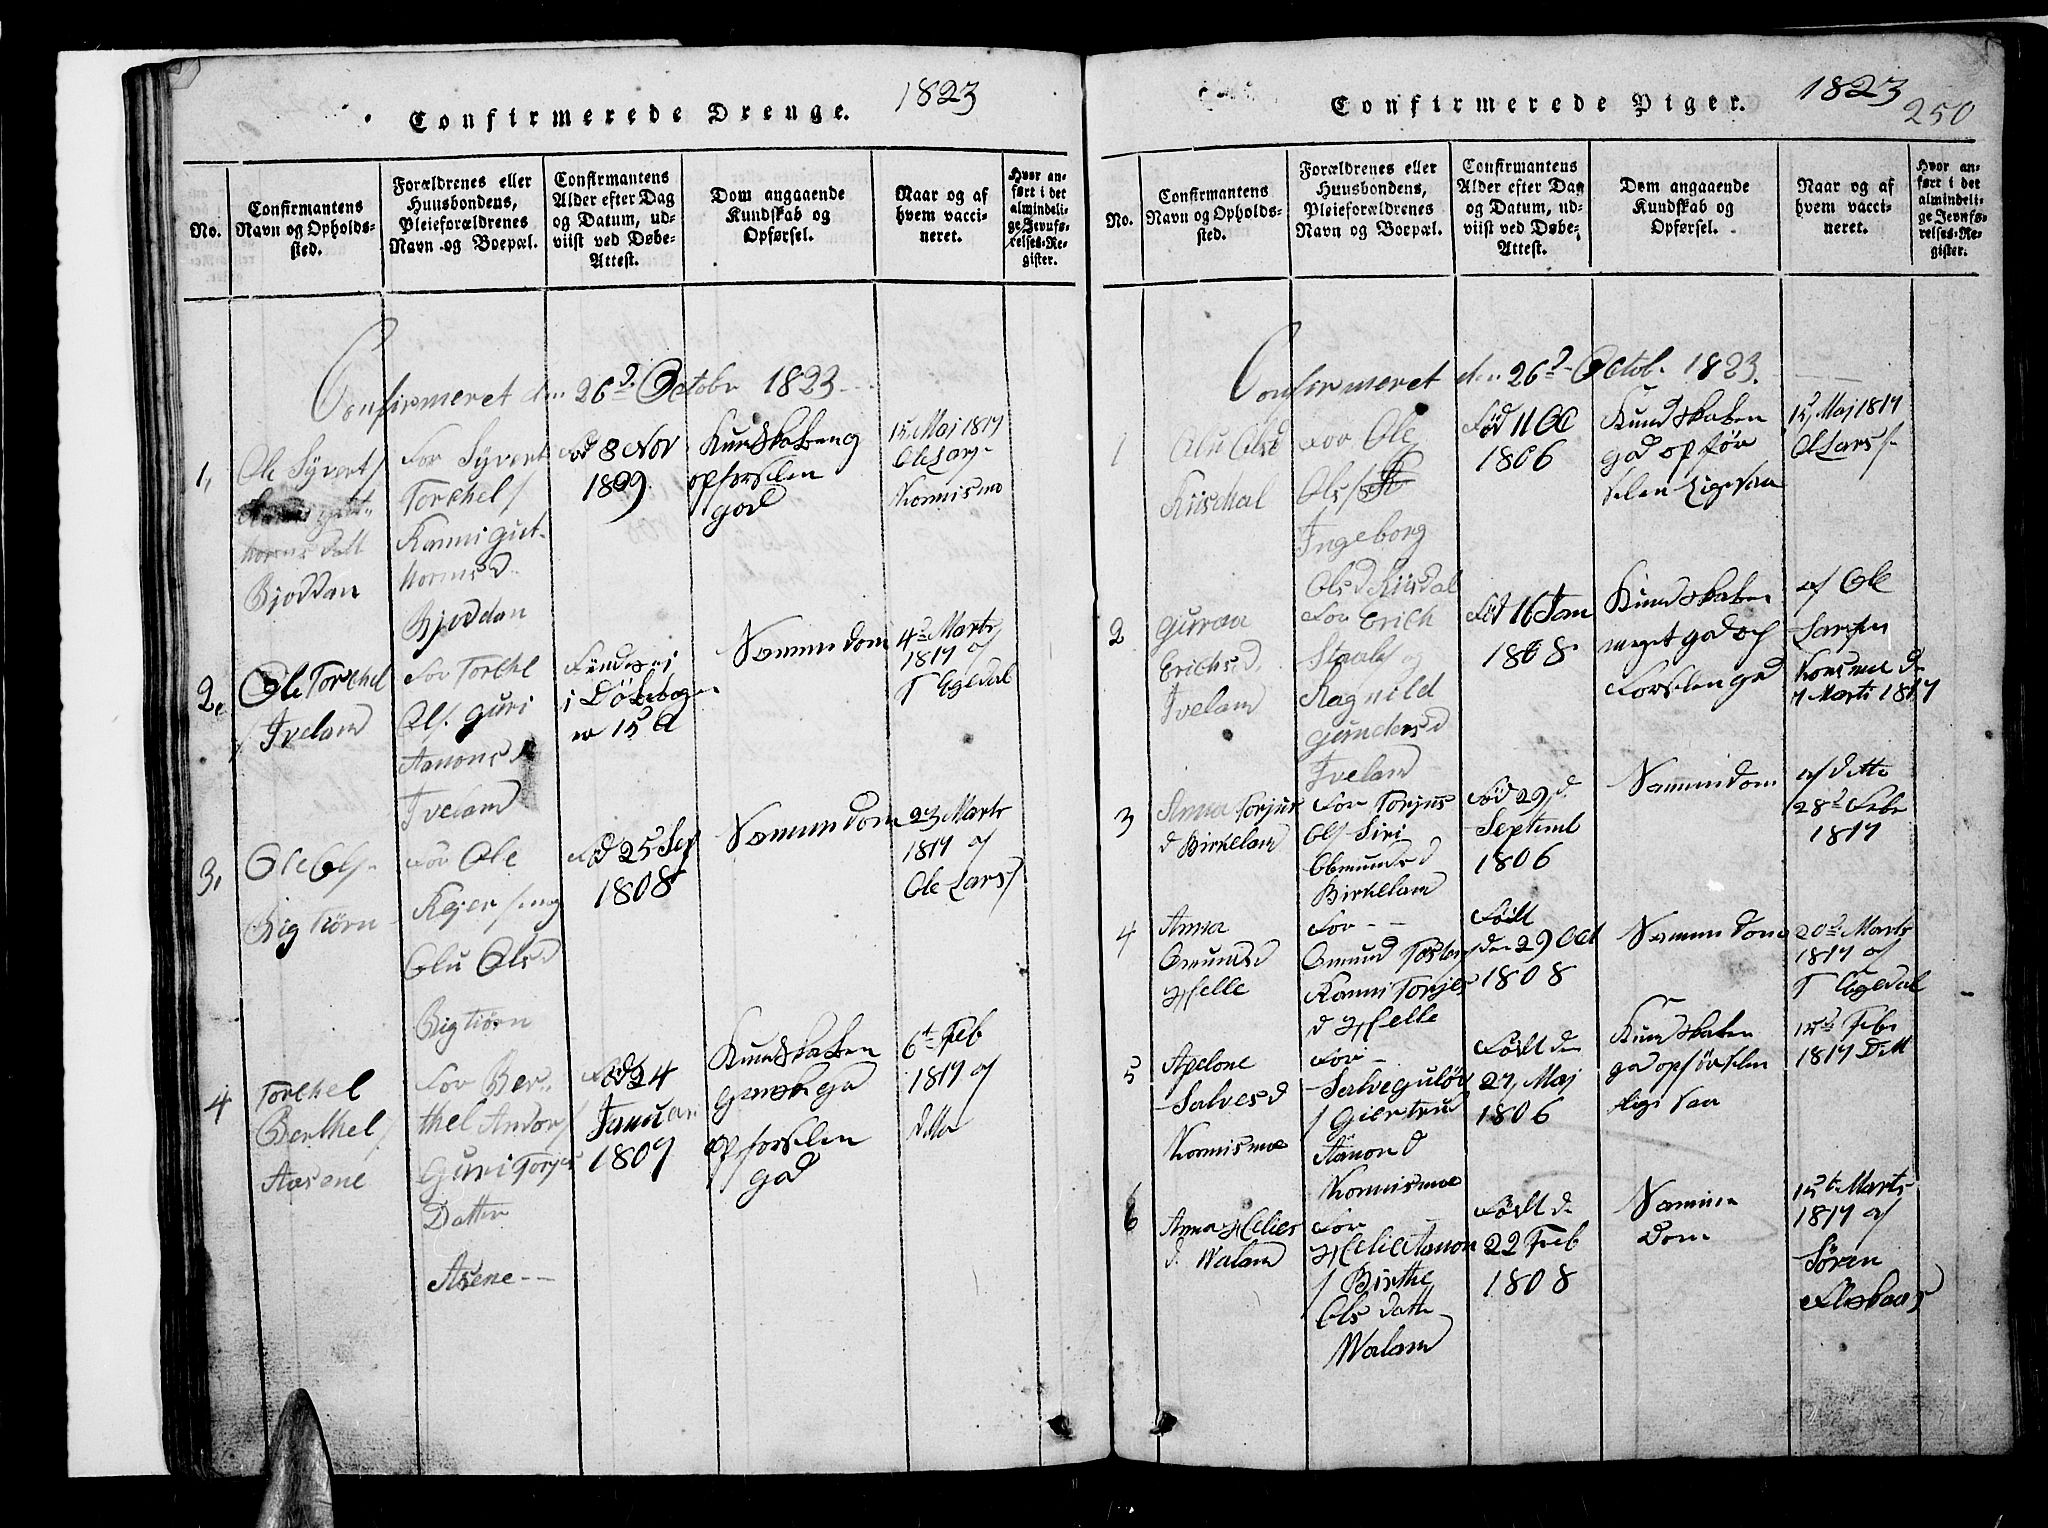 Confirmerede Drenge.
1823
No.
Confirmantens
Navn og Opholds-
sted.
Forældrenes eller
Huusbondens,
Pleieforældrenes
Navn og Boepæl.
Confirmantens
Alder efter Dag
og Datum, ud-
viist ved Døbe-
Attest.
Dom angaaende
Kundskab og
Opførsel.
Naar og af
hvem vacci-
neret.
Hvor an-
ført i det
almindeli-
ge Jevnfø-
relses-Re-
gister.
Confirmeret den 26d Octobr 1823
1,
Ole Syvert/
Bjoddan
For Syvert
Torchel/
Kanni gut-
horms d.
Bjoddan
Fød 8 Nov
1809.
Kundskaben og
opførselen
god
15 Maj 1817
Ole Lars-
Konnismo
2,
Ole Torchel
/ Iveland
For Torche
Ols. guri
Aanons d
Iveland
Findes ei
i Døbebogen
er 15 A
Sammedom
4d Marts
1817 af
T Egedal
3,
Ole Ols-
Rigtiørn
For Ole
Rejer/ og
Olu Olsd
Rigtiørn
Fød 25 Sep
1808
Sammedom
23 Marts
1817 af
Ole Lars/
4
Torchel
Berthel/
Aasene
For Ber-
thel Andor/
Guri Torjus
Datter
Asene--
Fød 24
Januari
1809
Kundskaben
ganske god
opførselen
god
6t Feb
1817 af
ditto
Confirmerede Piger.
1823
250
No.
Confirmantens
Navn og Opholds-
sted.
Forældrenes eller
Huusbondens,
Pleieforældrenes
Navn og Boepæl.
Confirmantens
Alder efter Dag
og Datum, ud-
viist ved Døbe-
Attest.
Dom angaaende
Kundskab og
Opførsel.
Naar og af
hvem vacci-
neret.
Hvor an-
ført i det
almindeli-
ge Jevnfø-
relses-Re-
gister.
Confirmeret den 26d Octob. 1823.
1
Olu Olsd
For Ole
Ols/
Ingeborg
Olsd Kiisdal
Fød 11 Oc
1806
Kundskaben
god opfør
selen ligesaa
15 Maj 1817
O Lars/-
2
Guroa
Erichs d.
Iveland
For Erich
Staals og
Ragnild
Gunders d
Iveland
Fød 16 Jan
1808
Kundskaben
meget god op
førslen god
af Ole
Larsen
Konsmoe d
7 Marts 1817
3
Anna Torjus
d Birkeland
For Torjus
Ols Siri
Omunds d
Birkeland
Fød 29 d.
Septemb
1806
Sammedom
af ditto
28d Febr
1817
4
Anna
Omunds d
Helle
For - -
Omund Tosten
Kanni Torjes
d Helle
Født
den 29 Oct
1808
Sammedom
20d Marts
1817 af
T Egedal
5
Apelone
Salves d
Konnismoe
For -
Salve guløv
/ Giertrud
Aanon d
Konnismoe
Født d
27, Maj
1806
Kundskaben
god opførselen
ligesaa
15d Feb
1817 Ditt
6
Anna Helies
d. Waland
For
Helie Aanon
/ Birthe
Ols datter
Waland
Født d
22 Feb
1808
Samme
Dom
15t Marts
1817 af
Søren